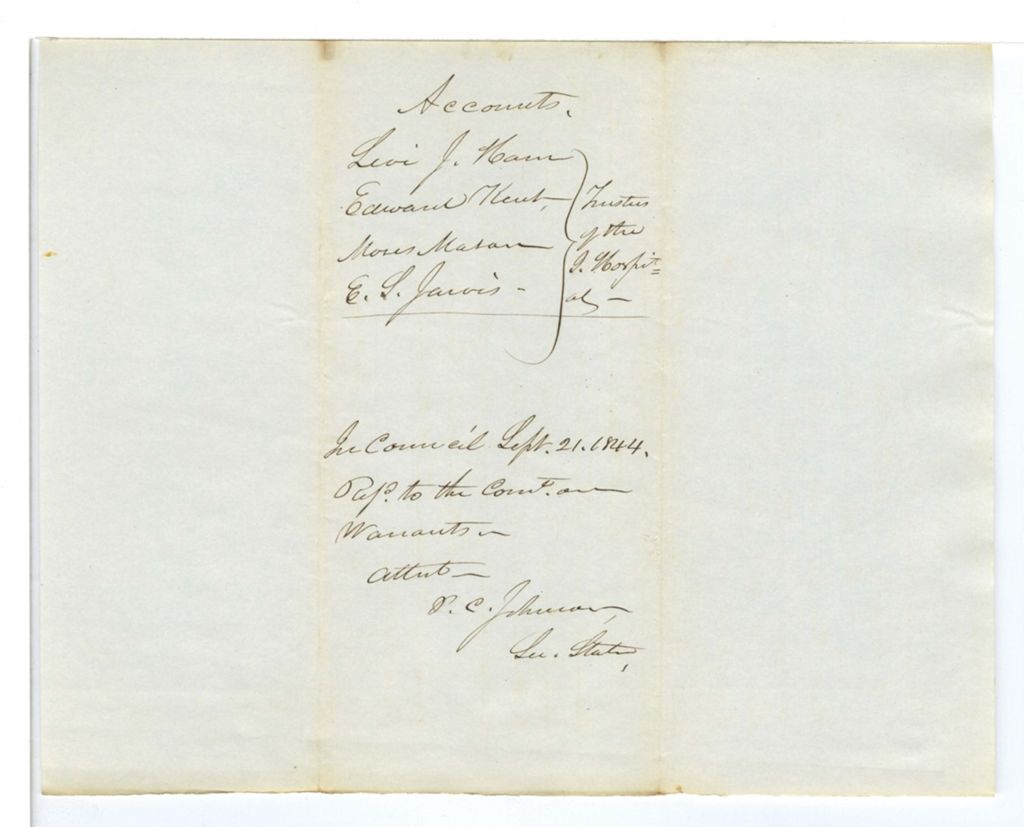 Accounts.
Levi J. Ham
Edward Kent,
Moses Mason
E. S. Jarvis -
Trustees
of the
I. Hospit=
al -
In Council Sept. 21. 1844.
Refd. to the Comt. on
Warrants -
Attest -
P. C. Johnson,
Sec. State,